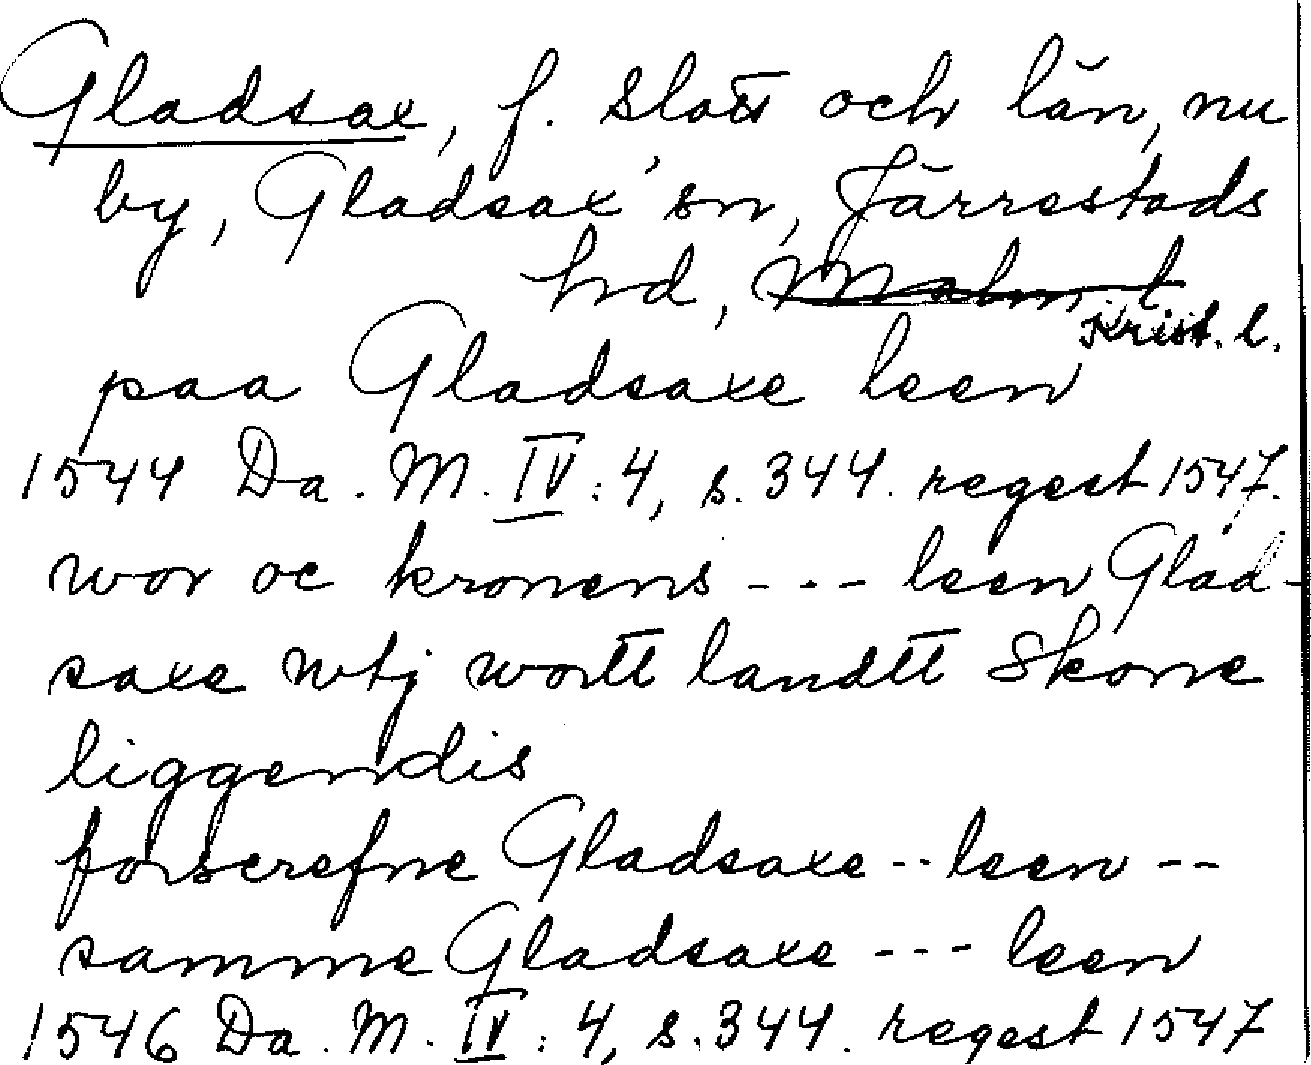 Gladsax, f. slott och län, nu
by, Gladsax' sn, Järrestads
hrd, Malm. l
Krist. l.
paa Gladsaxe leen
1544 Da. M. IV: 4, s. 344. regest 1547.
wor oc kronens --- leen Glad-
saxe wtj wortt landtt Skone
liggendis
forscrefne Gladsaxe -- leen --
samme Gladsaxe --- leen
1546 Da. M. IV: 4, s. 344. regest 1547